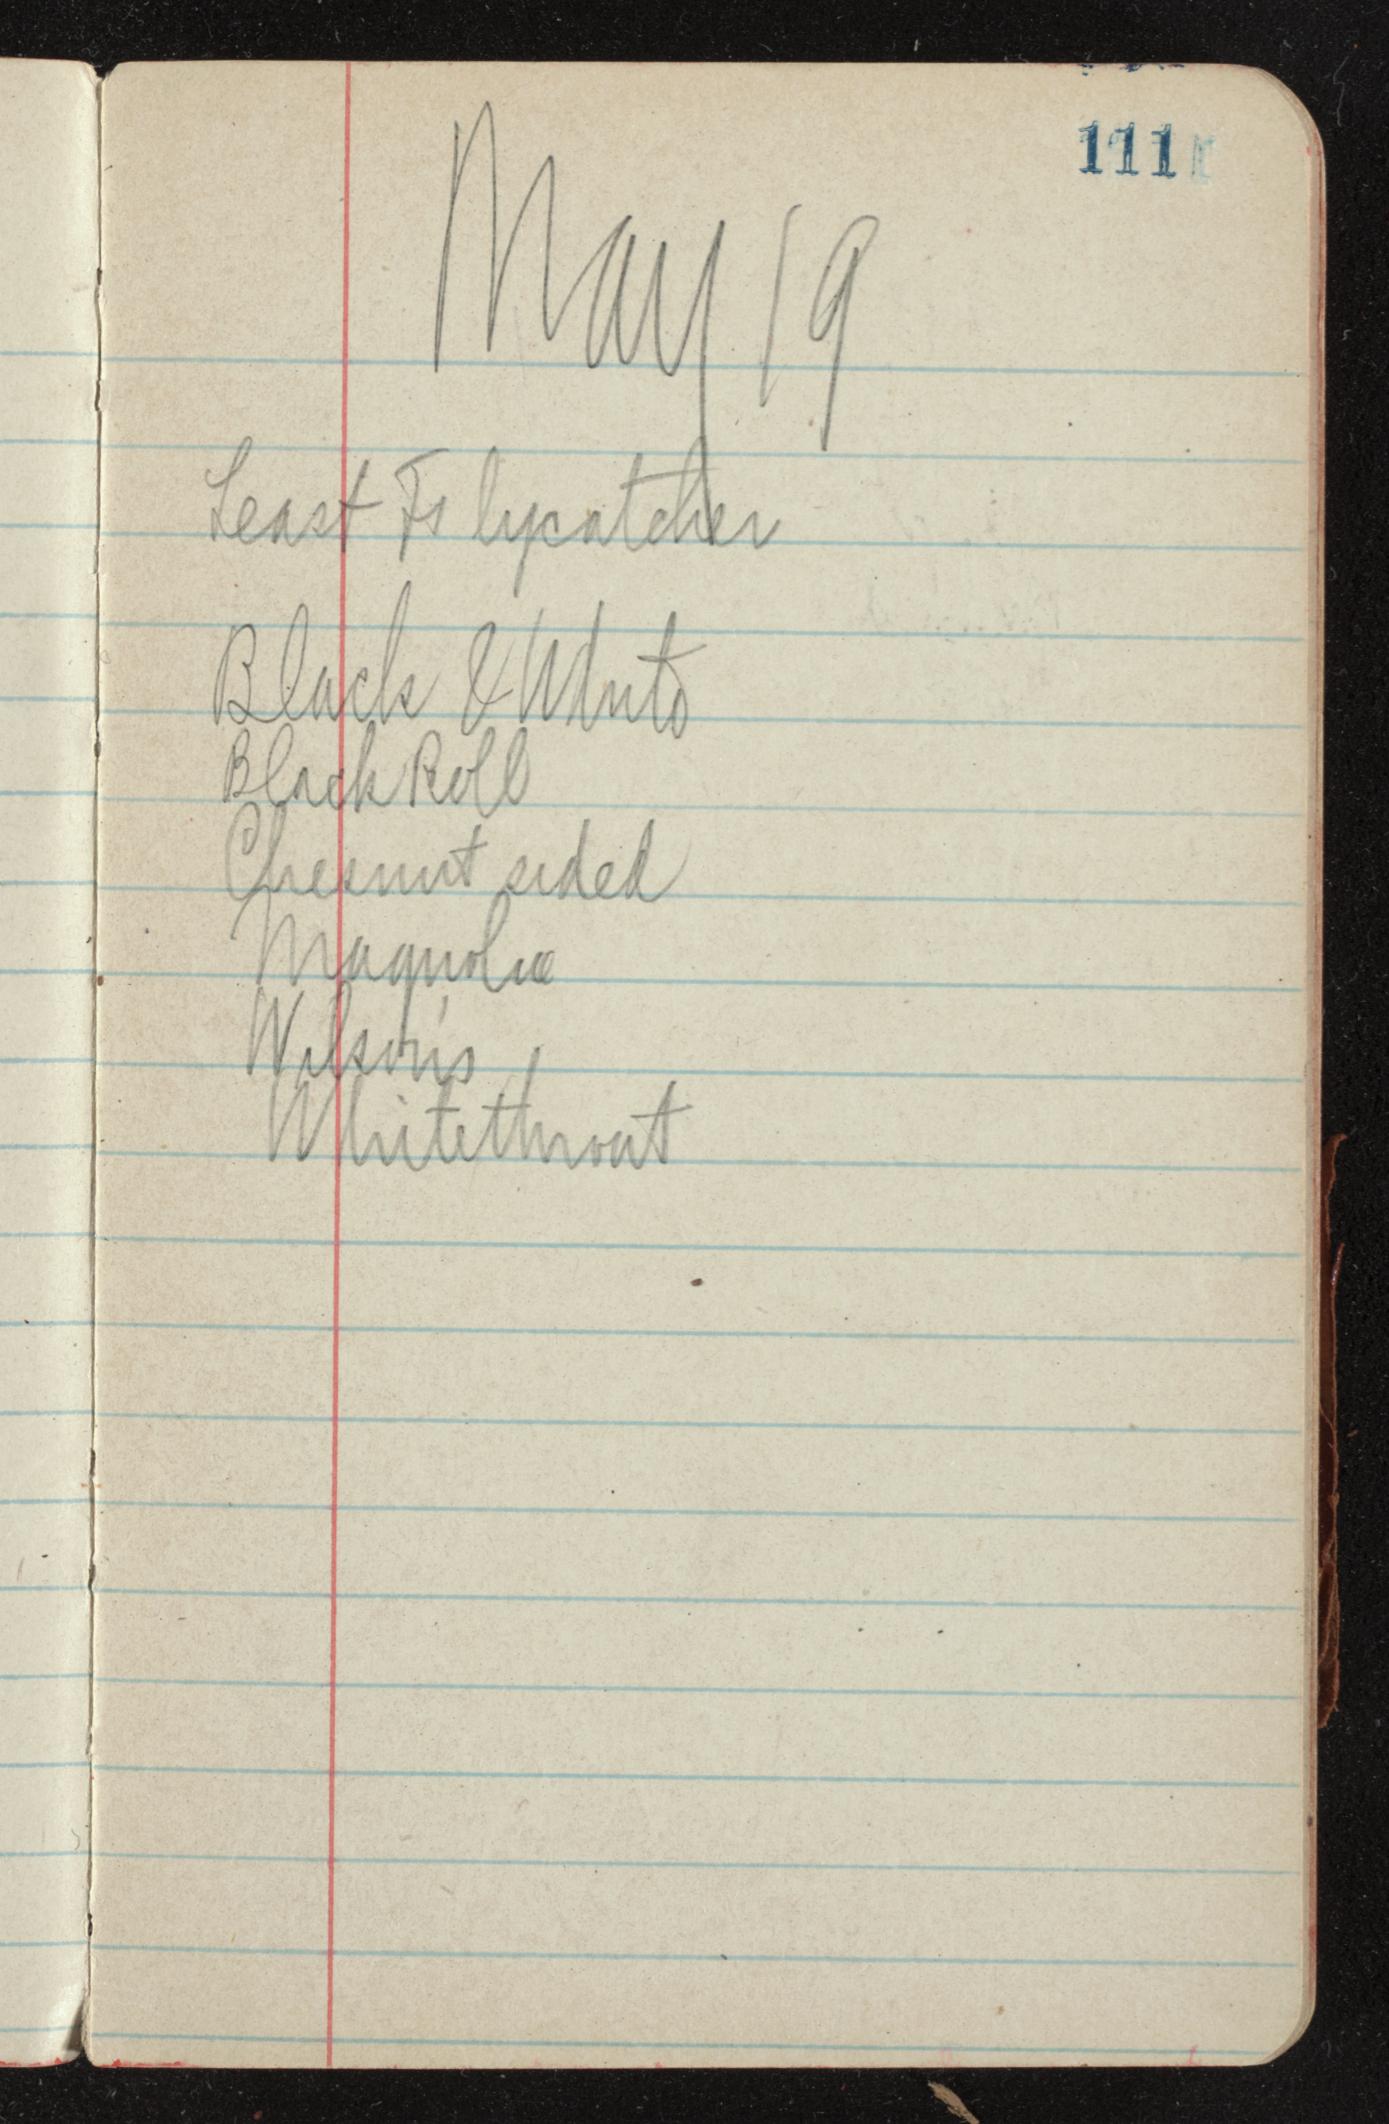 111
May 19
Least Flycatcher
Black & White
Black Poll
Chesnut sided
Magnolia
Wilson's
Whitethroat